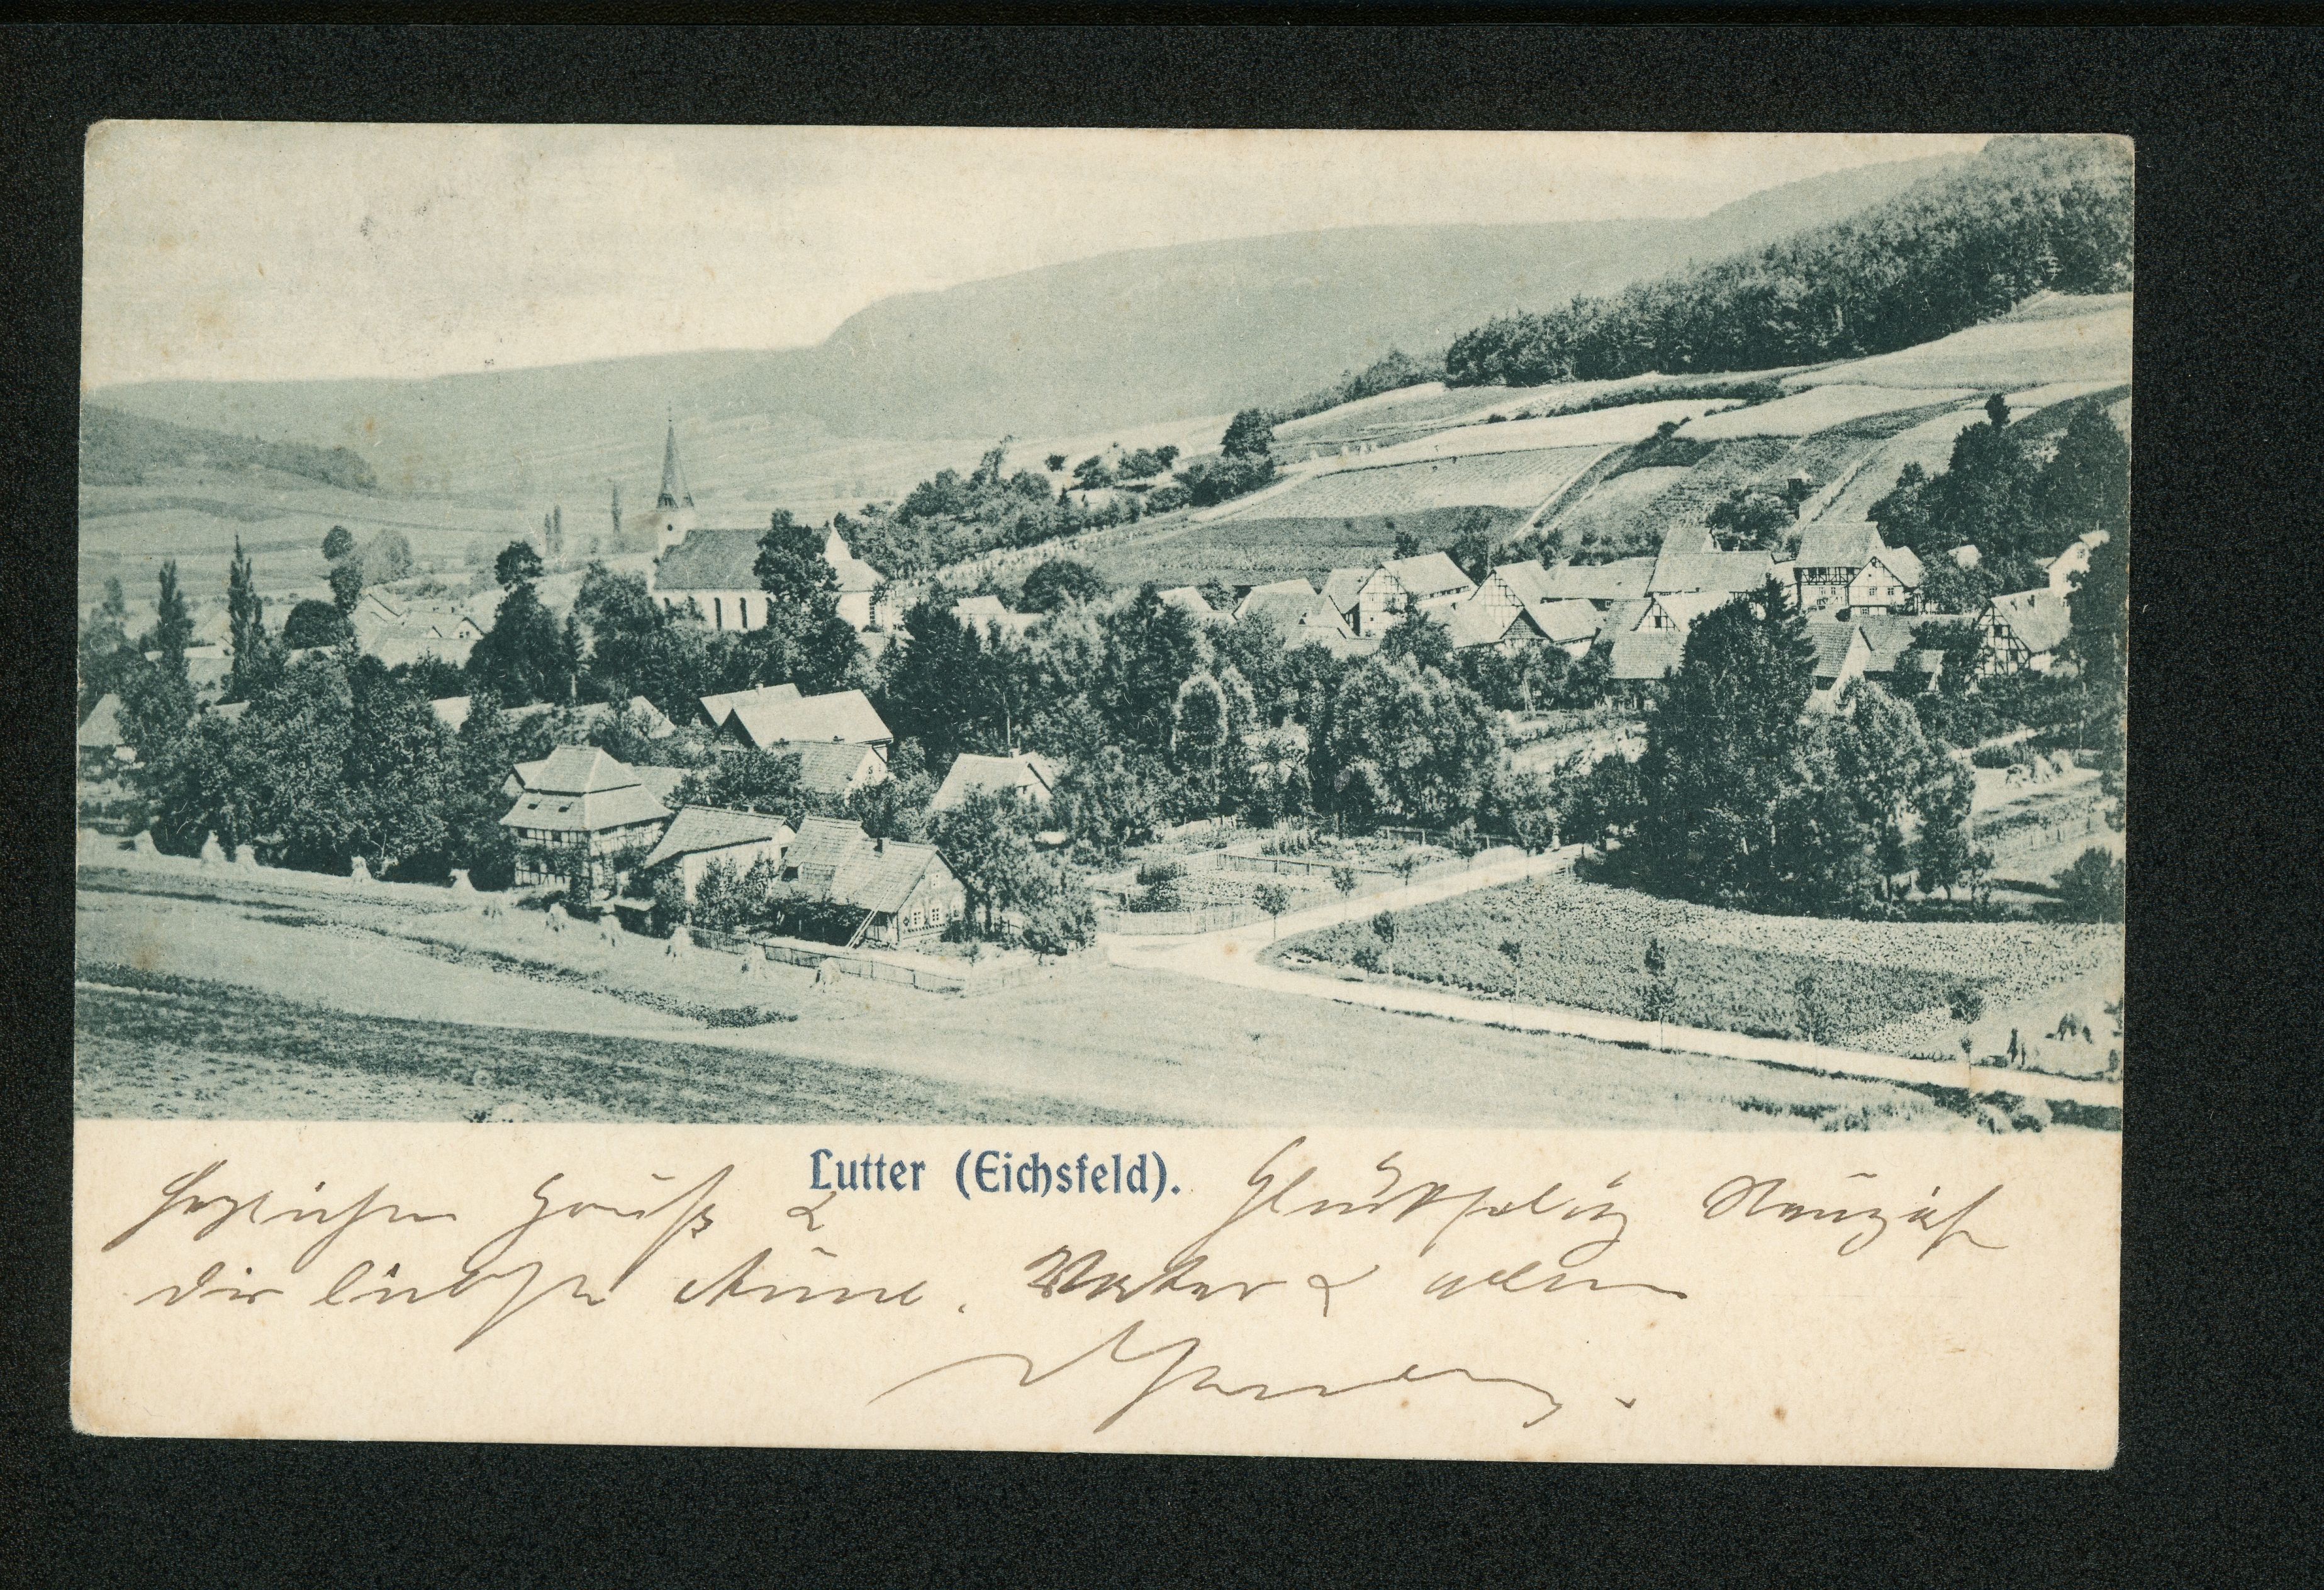 Lutter (Eichsfeld).
Herzlichen Gruß & Glückselig Neujahr
dir liebste Anne. Vater & allen